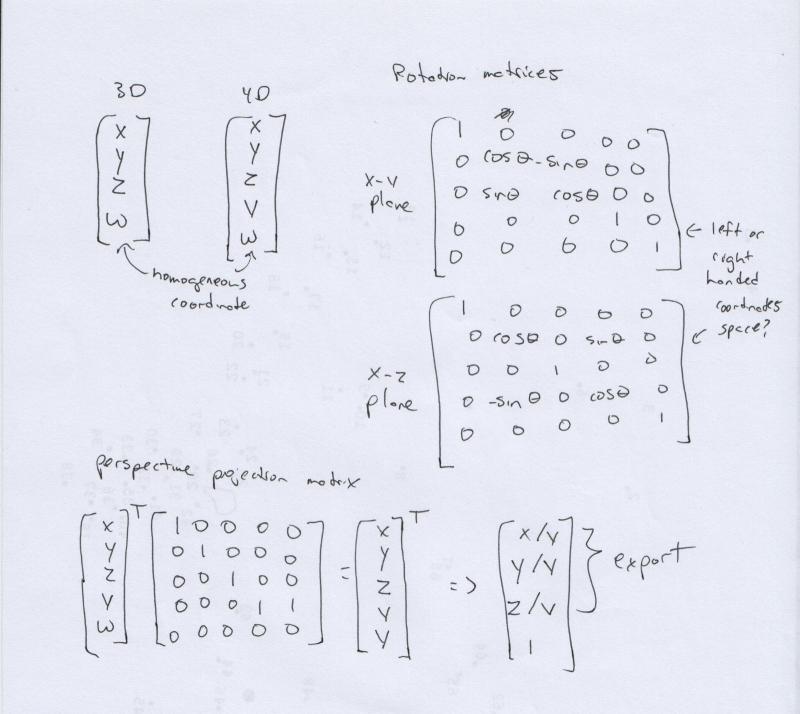 Rotation matrices
3D 4D
x
y
z
ω
x
y
z
v
ω
homogeneous
coordinate
x-v
plane
1 0 0 0 0
0 cosθ -sinθ 0 0
0 sinθ cosθ 0 0
0 0 0 1 0
0 0 0 0 1
← left or
right
handed
coordinates
space?
x-z
plane
1 0 0 0 0
0 cosθ 0 sinθ 0
0 0 1 0 0
0 -sinθ 0 cosθ 0
0 0 0 0 1
perspective projection matrix
x
y
z
v
ω
T
1 0 0 0 0
0 1 0 0 0
0 0 1 0 0
0 0 0 1 1
0 0 0 0 0
=
x
y
z
v
v
T
=>
x/v
y/v
z/v
1
export